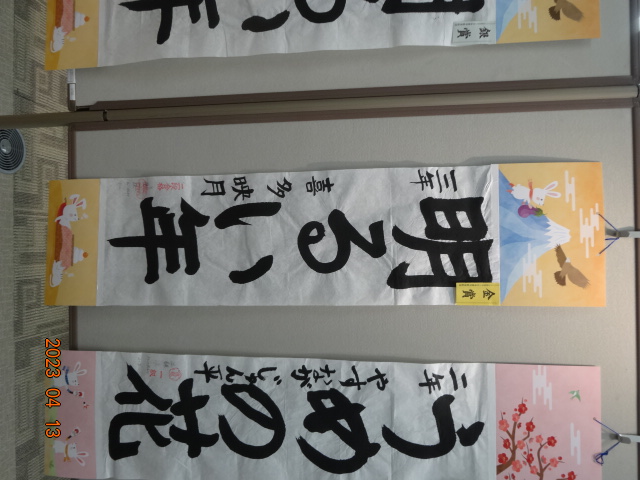 明るい年
三年
喜多映月
金賞
うめの花
二年
やすながじゅん平
銀賞
るい年
2023 04 13